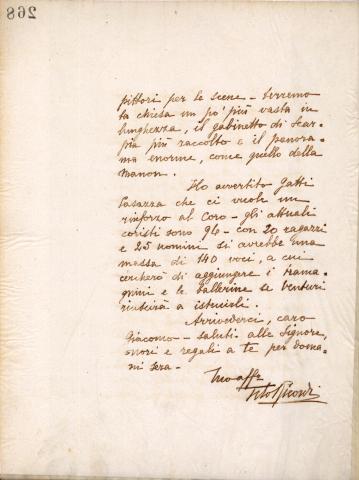 268
pittori per le scene - terremo
la chiesa un po' più vasta in
lunghezza, il gabinetto di Scar-
pia più raccolto e il panora-
ma enorme, come quello della
Manon.
Ho avvertito Gatti
Casazza che ci vuole un
rinforzo al Coro - gli attuali
coristi sono 96 - con 20 ragazzi
e 25 uomini si avrebbe una
massa di 140 voci, a cui
cercherò di aggiungere i trama-
gnini e le ballerine se Venturi
riuscirà a istruirli.
Arrivederci, caro
Giacomo - saluti alle Signore,
onori e regali a te per doma-
ni sera -
Tuo aff.
Tito Ricordi